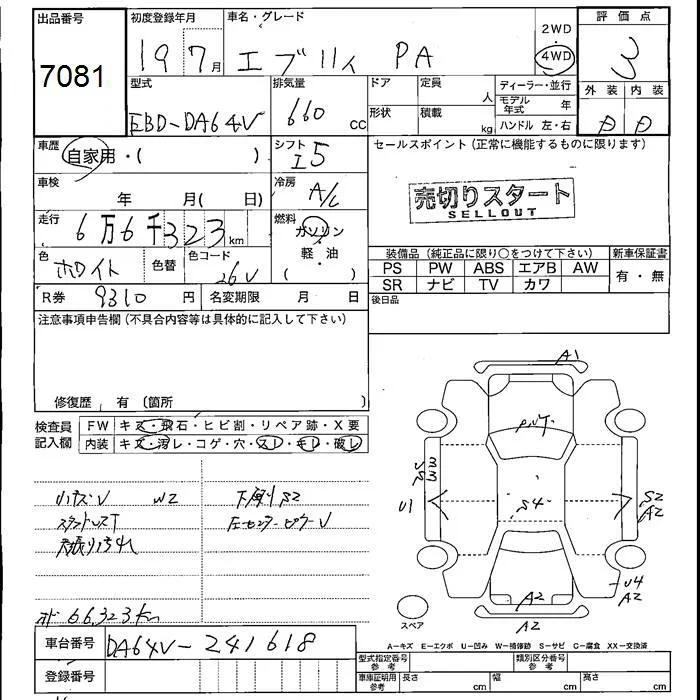 出品番号 初度登録年月 車名・グレード 2WD 評価点
7081 19 7月 エブリィ PA 4WD 3
型式 排気量 ドア 定員 人 ディーラー・並行 外装 内装
EBD-DA64V 660 cc 形状 積載 kg モデル年式 年 D D
ハンドル 左・右
車歴 自家用・( ) シフト I5 セールスポイント(正常に機能するものに限ります)
車検 年 月( 日) 冷房 A/C 売切りスタート
SELLOUT
走行 6万6千323km 燃料 ガソリン・軽油 ( )
色 ホワイト 色替 色コード 26V 装備品(純正品に限り○をつけて下さい) 新車保証書
PS PW ABS エアB AW 有・無
SR ナビ TV カワ
R券 9310円 名変期限 月 日 後日品
注意事項申告欄(不具合内容等は具体的に記入して下さい)
修復歴 有 (箇所 )
検査員記入欄 FW キズ・飛石・ヒビ割・リペア跡・X要
内装 キズ・汚レ・コゲ・穴・スレ・キレ・破レ
A1
S4
U1 S2
A2
W2 下廻りS2
左センターピラーU
U4
A2
A2
A2
スペア
66,323km
車台番号 DA64V-241618
A-キズ E-エクボ U-凹み W-補修跡 S-サビ C-腐食 XX-交換済
登録番号 型式指定番号参考 類別区分番号参考
車庫証明用参考 長さ cm 幅 cm 高さ cm